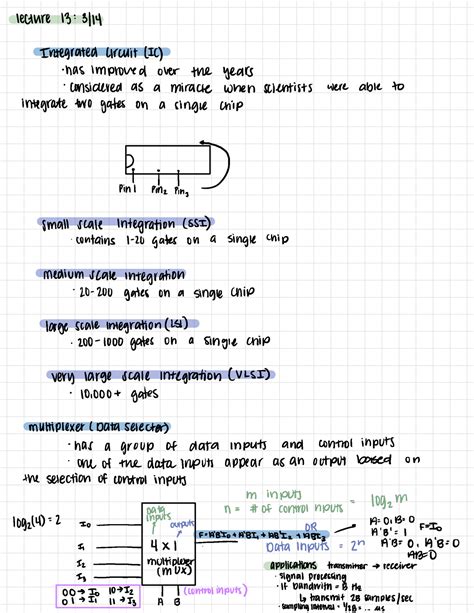 lecture 13: 3/14
Integrated Circuit (IC)
· has improved over the years
· considered as a miracle when scientists were able to
integrate two gates on a single chip
Pin 1 Pin 2 Pin 3
small scale Integration (SSI)
· contains 1-20 gates on a single chip
medium scale integration
· 20-200 gates on a single chip
large scale integration (LSI)
· 200-1000 gates on a single chip
very large scale Integration (VLSI)
· 10,000+ gates
multiplexer (Data Selector)
· has a group of data inputs and control inputs
· one of the data inputs appear as an output based on
the selection of control inputs
m inputs
n = # of control inputs = log₂ m
log₂(4) = 2
I₀
I₁
I₂
I₃
Data inputs
outputs
4 x 1
multiplexer
(mux)
A B (control inputs)
F = A'B'I₀ + A'BI₁ + AB'I₂ + ABI₃
OR
Data inputs = 2ⁿ
A=0, B=0
A'B' = 1
F = I₀
A'B=0, AB'=0
AB=0
00 → I₀ 10 → I₂
01 → I₁ 11 → I₃
applications transmitter → receiver
· signal processing
· if bandwith = B Hz
↳ transmit 2B samples/sec
· sampling interval = 1/2B = ... ms